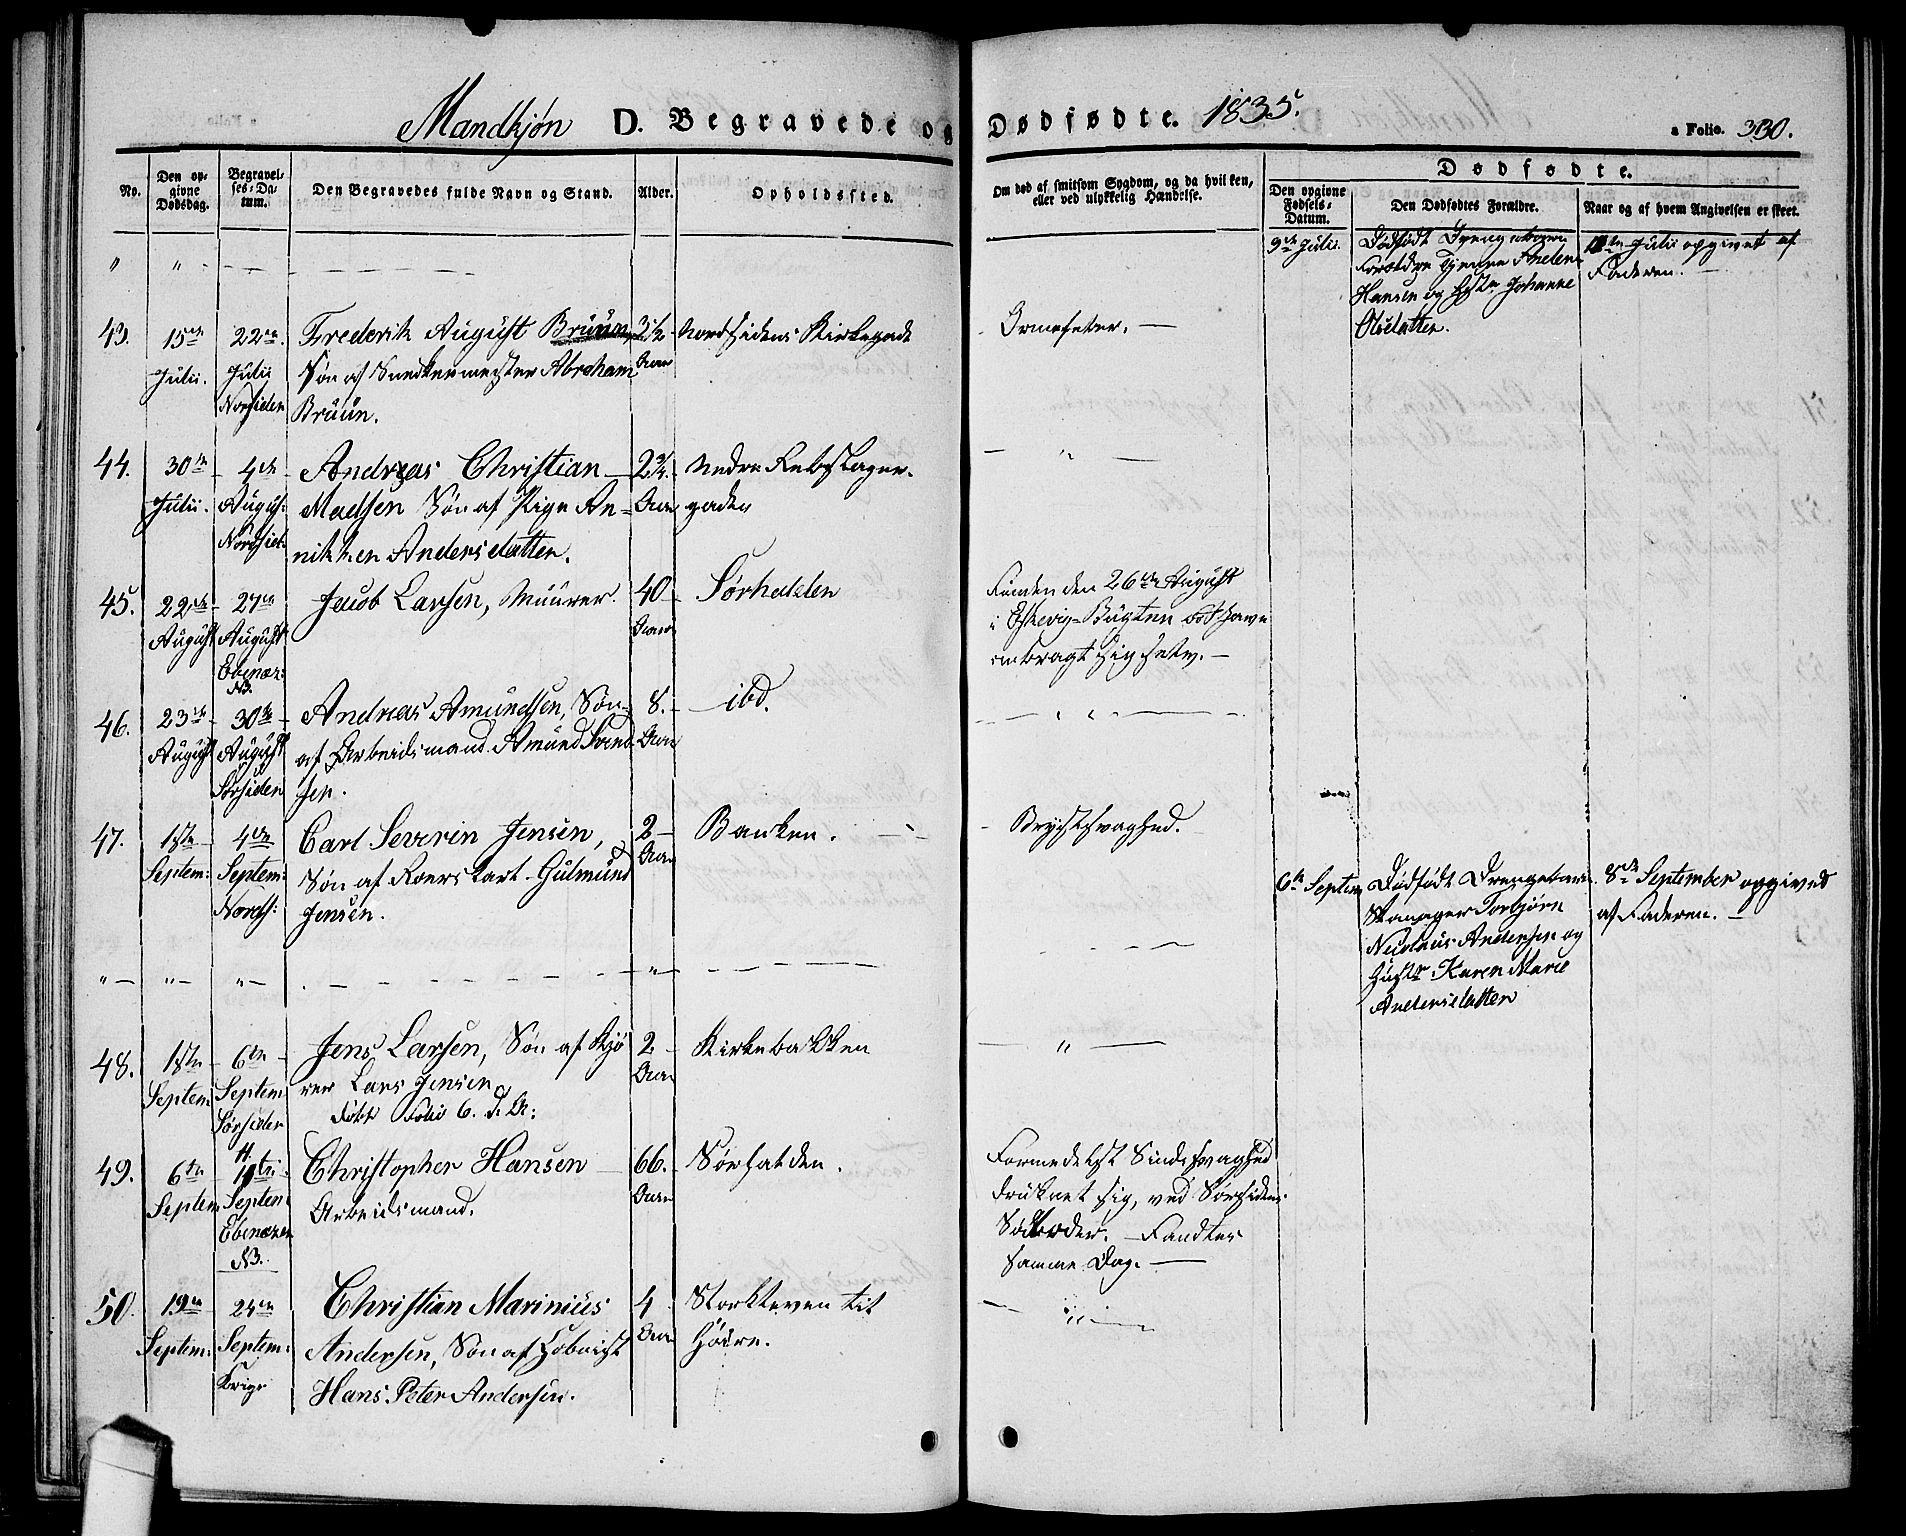 Mandkjøn D. Begravede og Dødfødte. 1835. a Folio. 330.
No. Den opgivne Dødsdag. Begravelses-Datum. Den Begravedes fulde Navn og Stand. Alder. Opholdssted. Om død af smitsom Sygdom, og da hvilken, eller ved ulykkelig Hændelse.
Dødfødte.
Den opgivne Fødsels-Datum. Den Dødfødtes Forældre. Naar og af hvem Angivelsen er skeet.
9de Julii. Dødfødt Drengebarn
Forældre
Hansen og Johanne
Olsdatter.
Julii opgivet af
Faderen.
43. 15de Julii. 22de Julii Norsiden
Frederik August Brüün,
Søn af Snedkermester Abraham
Brüün.
3½ Aar
Nordsidens Kirkegade
Ormefeber.
44. 30te Julii. 4de August: Nordsid:
Andreas Christian
Madsen Søn af Pige An-
nikken Andersdatter.
2¾ Aar
Nedre Rebslager-
gaden
45. 22de August 27de August Ebenæz: NB.
Jacob Larsen, Muurer.
40 Aar
Sørhalden
Funden den 26de August
i Eskevig-Bugten at have
ombragt sig selv.
46. 23de August 30te August Sørsiden
Andreas Amundsen, Søn
af Arbeidsmand Amund Svend-
sen.
8. Aar
ibd.
47. 1ste Septem: 4de Septem: Nords:
Carl Severin Jensen,
Søn af Roerskart Gulmund
Jensen.
2 Aar
Banken.
Brystsvaghed.
6te Septem Dødfødt Drengebarn
Torbjørn
Nicolaus Andersen og
Hustr Karen Marie
Andersdatter
8de September opgived
af Faderen.
48. 1ste Septem: 6te Septem: Sørsiden
Jens Larsen, Søn af Kjø
rer Lars Jensen
Folio 6.
2 Aar
Kirkebakken
49. 6te Septem 11te Septem: Ebenæzer NB.
Christopher Hansen
Arbeidsmand.
66. Aar
Sørhalden.
Formedelst Sindssvaghed
druknet sig, ved Sørsidens
Søeboder. Fandtes
samme Dag.
50. 19de Septem: 24de Septem: Krigs
Christian Marinius
Andersen, Søn af Hoboist
Hans Peter Andersen.
4 Aar
Storkleven til
Høire.